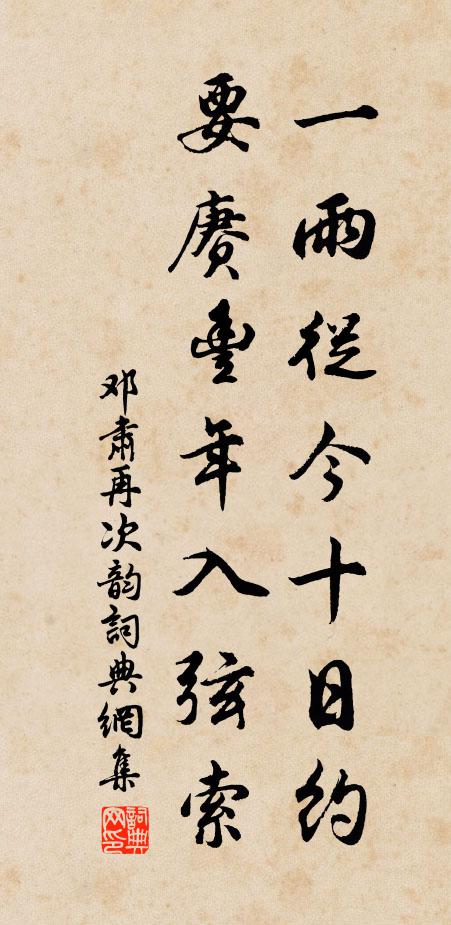 一雨從今十日約
要賡豐年入弦索
邓肅再次韵詞典網集
詞典网印